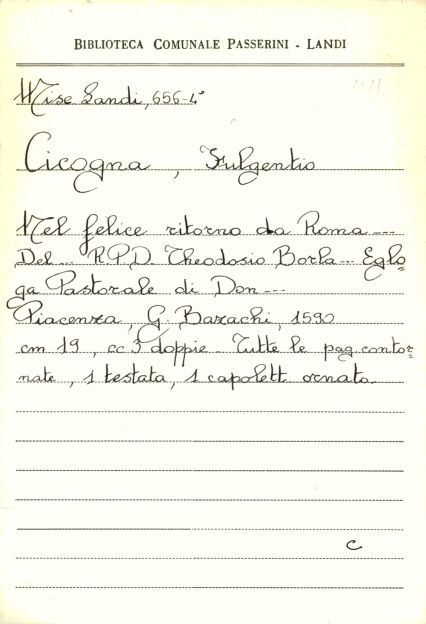 BIBLIOTECA COMUNALE PASSERINI - LANDI
Misc Landi, 656-4°
Cicogna, Fulgentio
Nel felice ritorno da Roma ---
Del --- R.P.D. Theodosio Borla --- Eglo=
ga Pastorale di Don ---
Piacenza, G. Bazachi, 1590
cm 19, cc 3 doppie. Tutte le pag. contor=
nate, 1 testata, 1 capolett ornato.
C